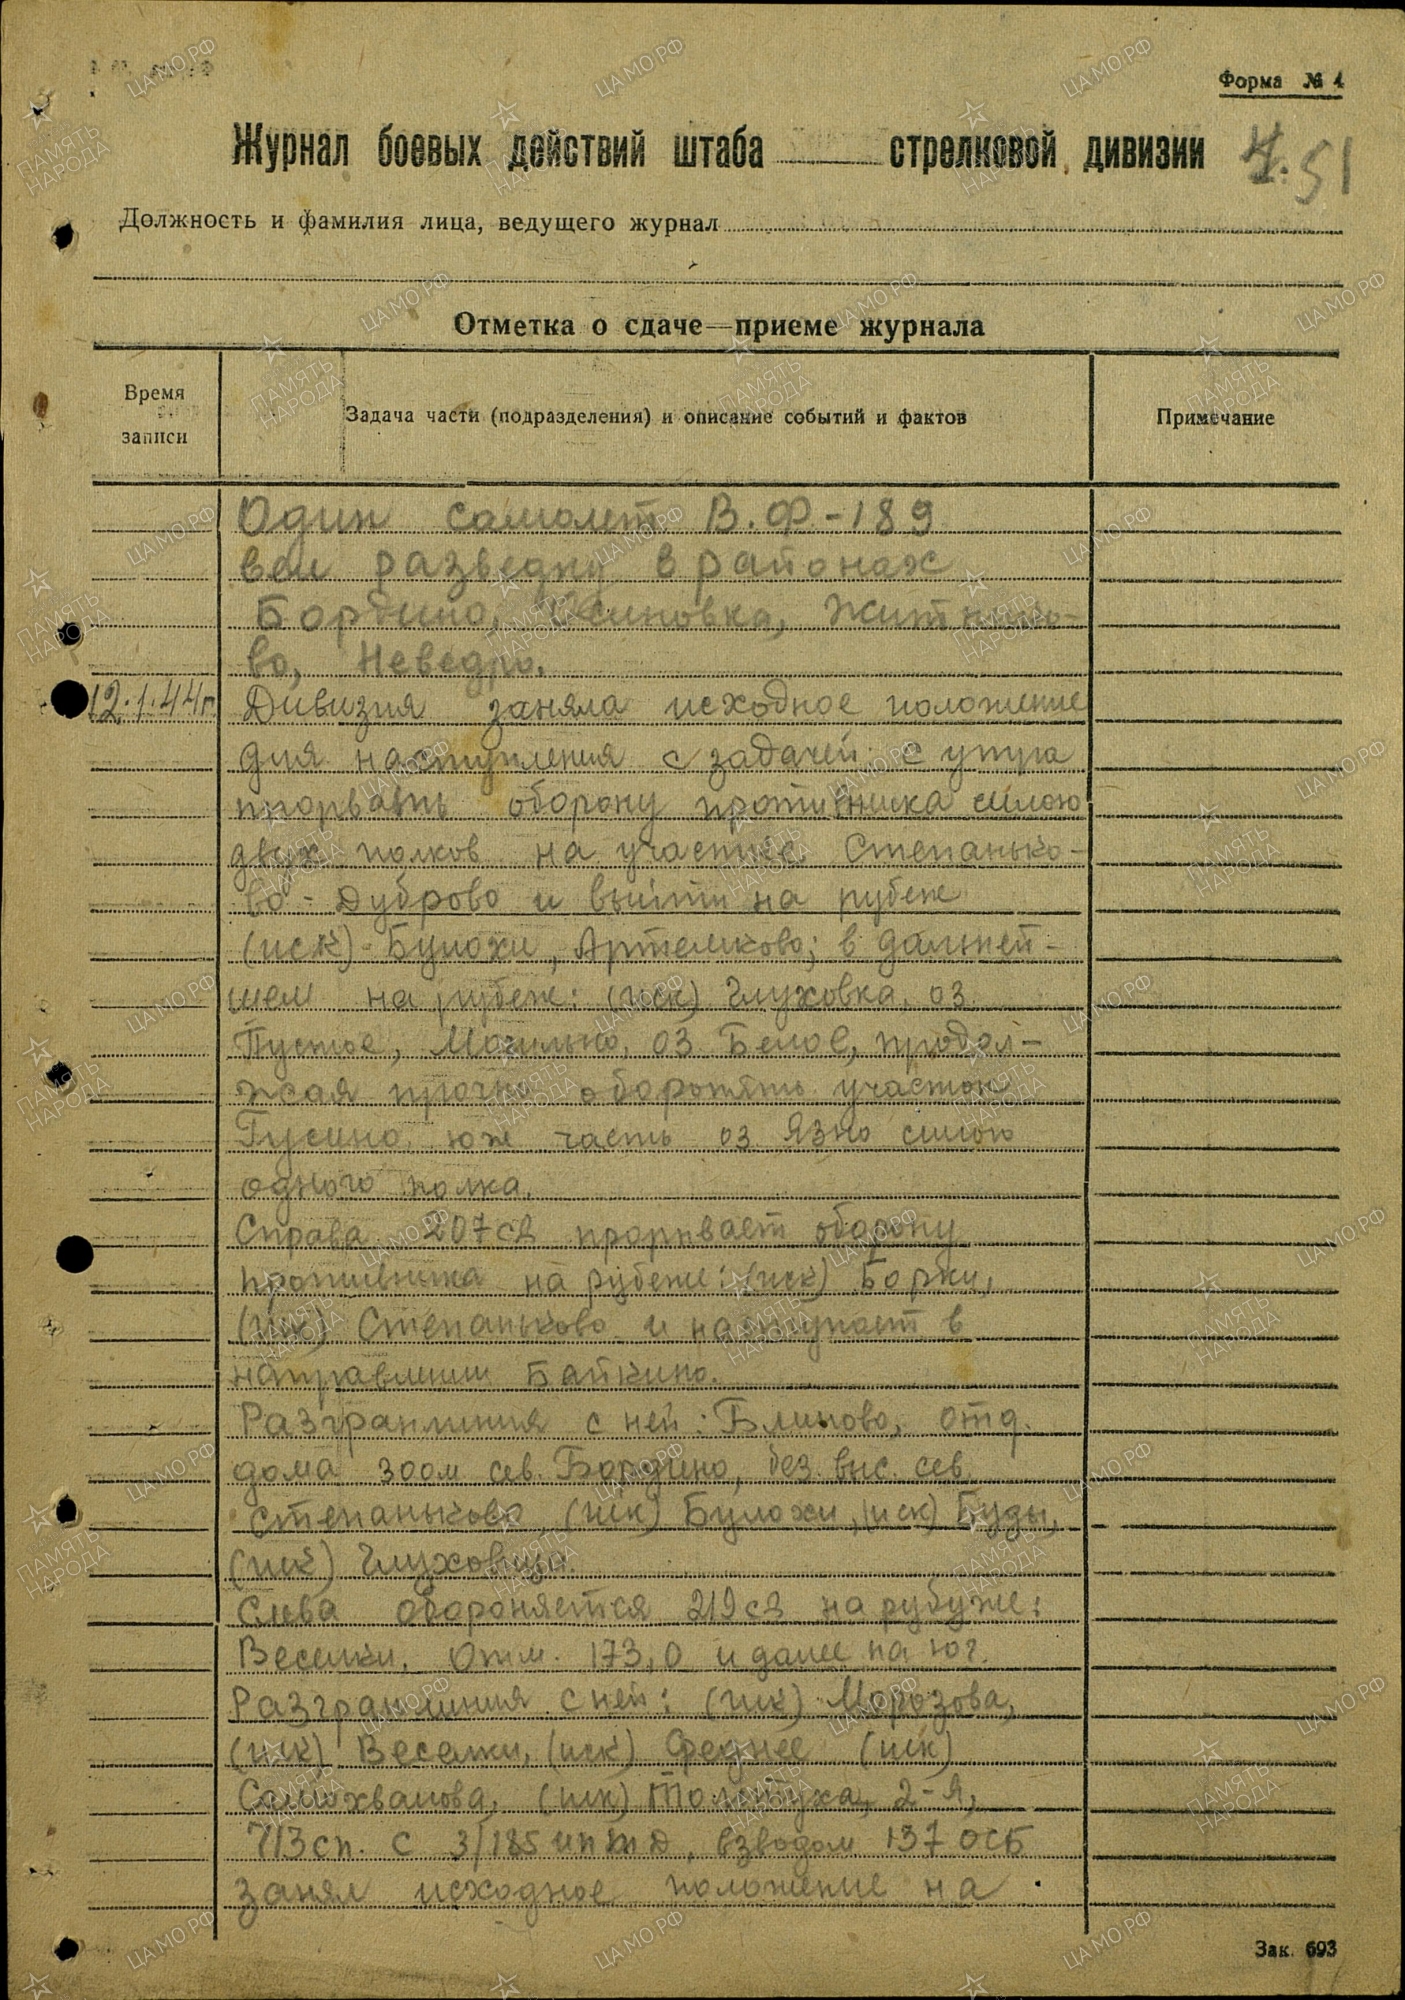 Форма № 4
Журнал боевых действий штаба стрелковой дивизии
51
Должность и фамилия лица, ведущего журнал
Отметка о сдаче—приеме журнала
Время записи
Задача части (подразделения) и описание событий и фактов
Примечание
Один самолет В.Ф-189
вел разведку в районах
Бордино, Осиновка,
во, Неведро.
12.1.44г.
Дивизия заняла исходное положение
для наступления с задачей: с утра
прорвать оборону противника силою
двух полков на участке Степанько-
во - Дуброво и выйти на рубеж
(иск) Булохи, Артемково; в дальней-
шем на рубеж: (иск) Глуховка, оз.
Пустое, Могильно, оз Белое, продол-
жая прочно оборонять участок
Гусино, юж часть оз. Язно силою
одного полка.
Справа 207 сд прорывает оборону
противника на рубеже: (иск) Борки,
(иск) Степаньково и наступает в
направлении Байкино.
Разгранлиния с ней: Блиново, отд.
дома 300м сев. Бордино, без. выс. сев.
Степаньково, (иск) Булохи, (иск) Буды,
(иск)
Слева обороняется 219 сд на рубуже:
Веселки, Отм. 173,0 и далее на юг.
Разгранлиния с ней: (иск) Морозова,
(иск) Веселки, (иск) (иск)
Самохвалова, (иск) Толстуха, 2-я,
713 сп. с 3/185 иптд, взводом 137 ОСБ
занял исходное положение на
Зак. 693
ЦАМО.РФ
ПАМЯТЬ НАРОДА